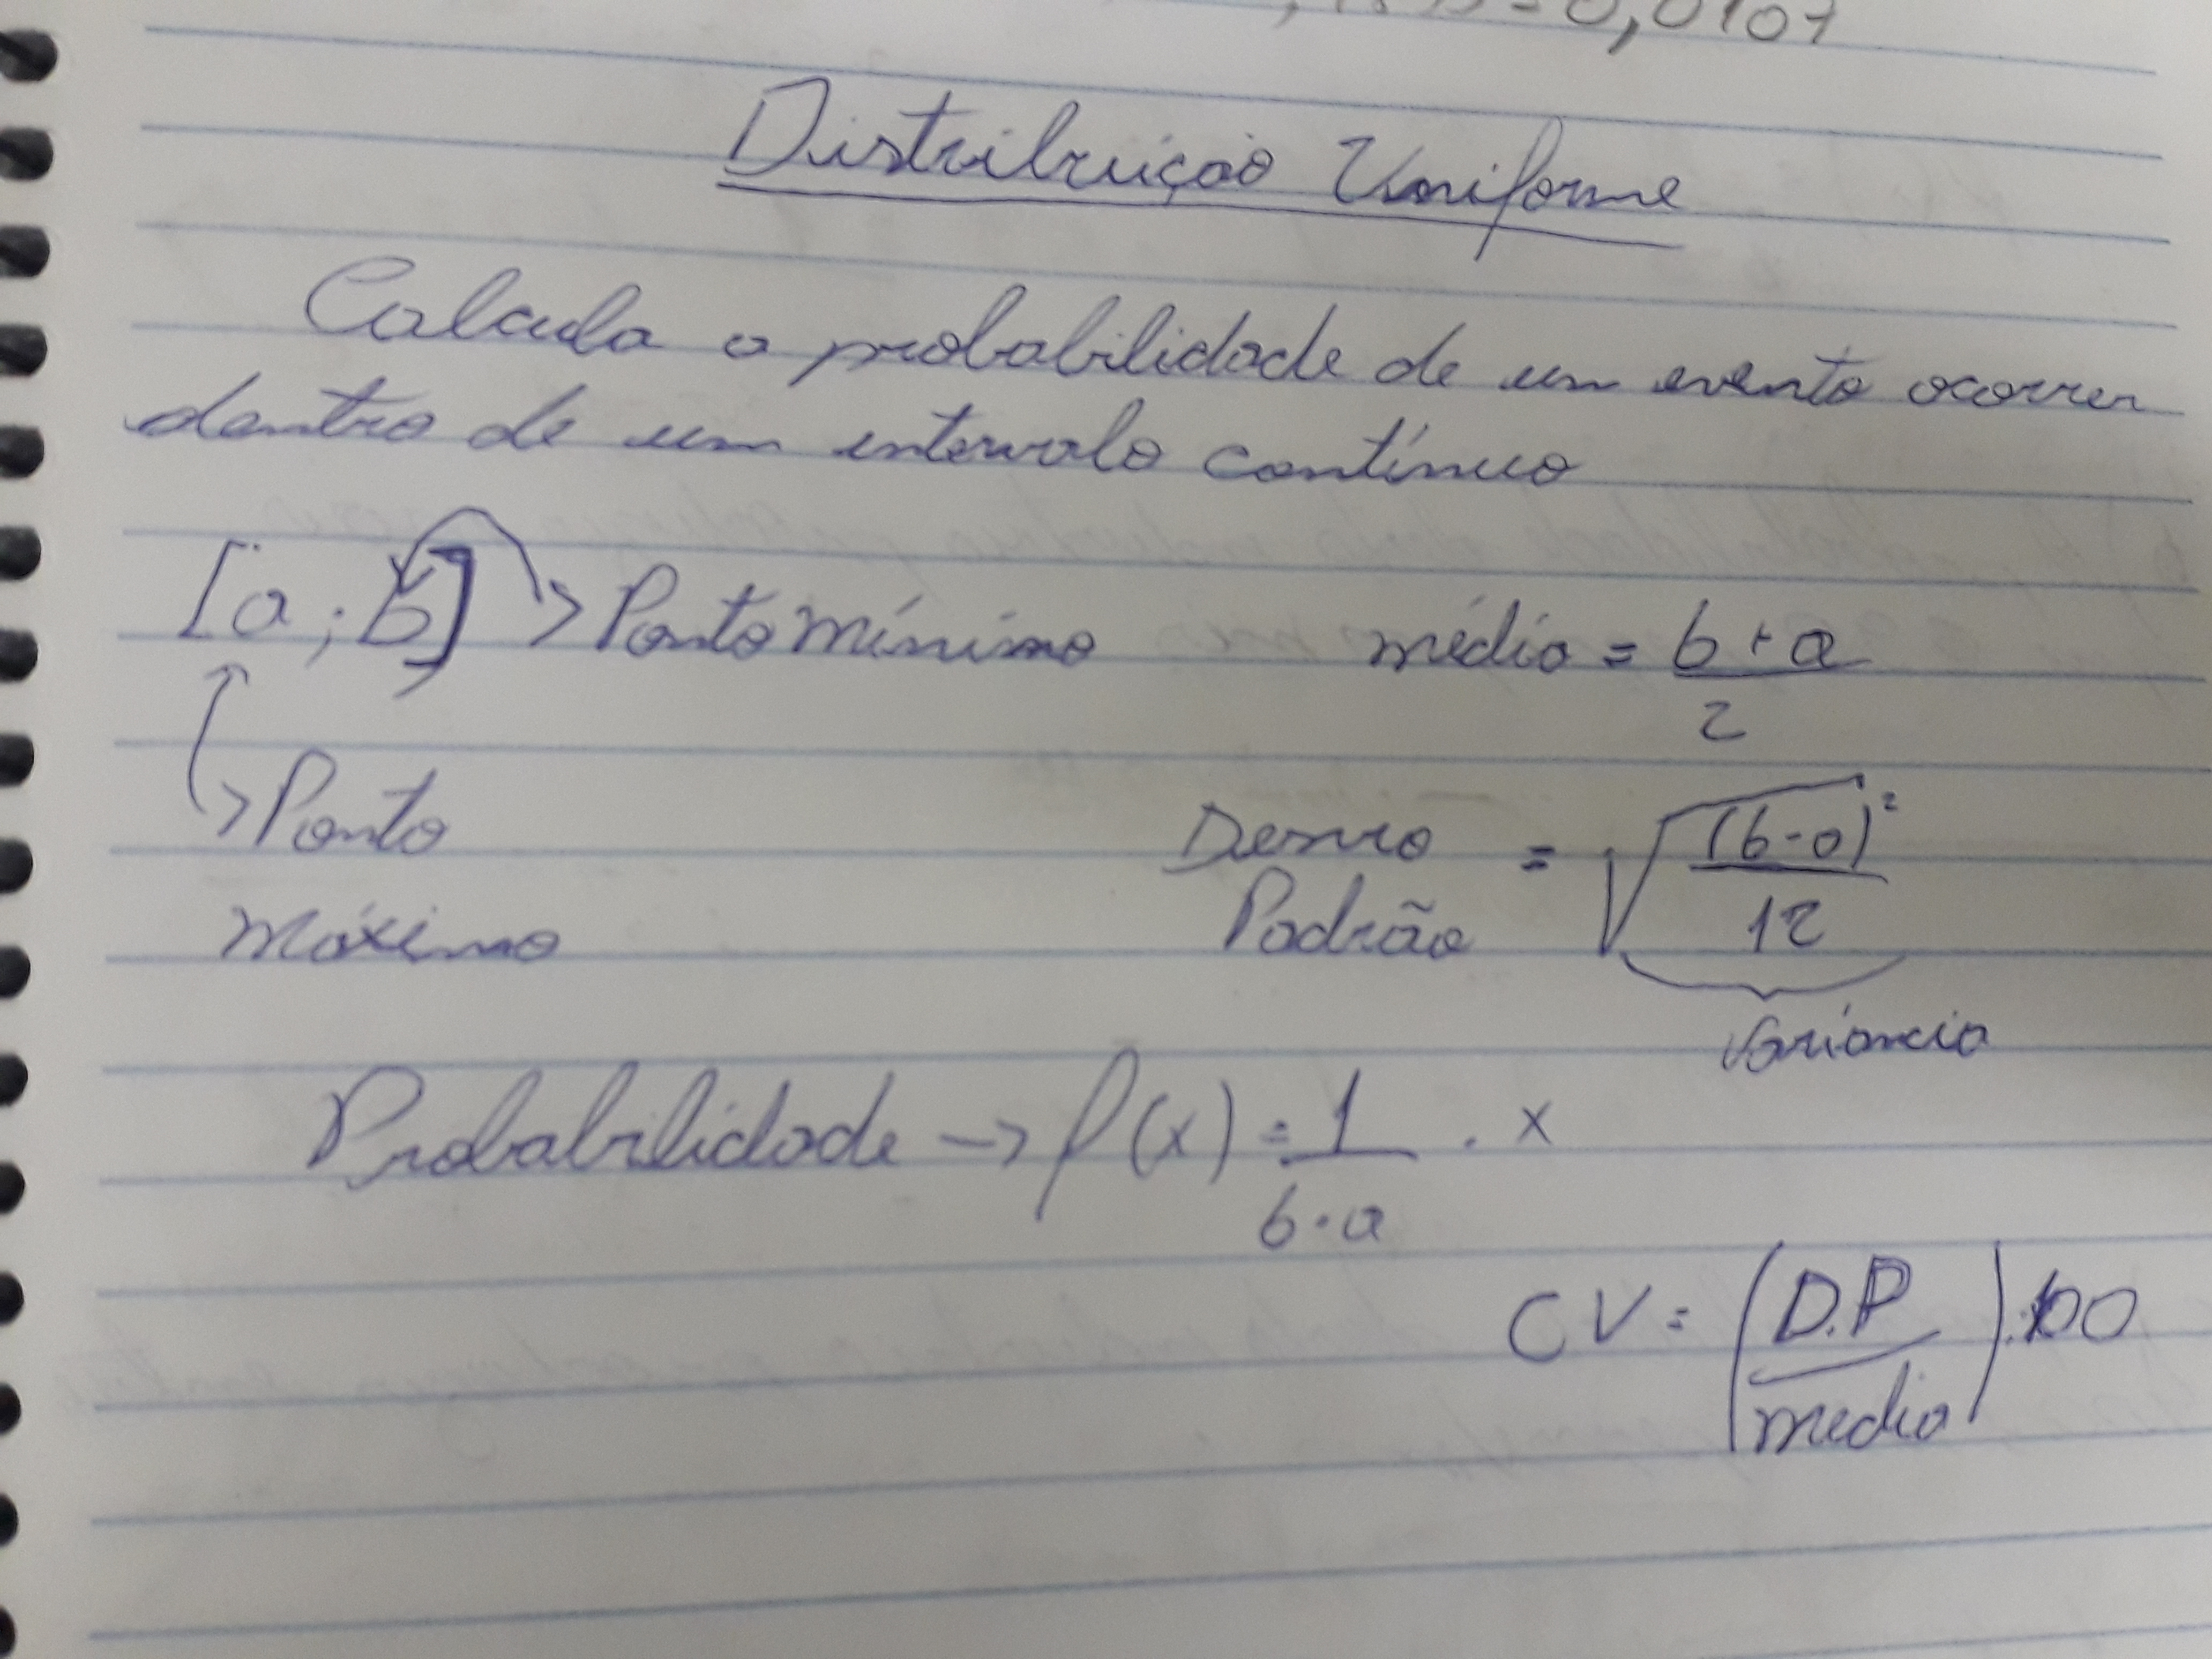 Distribuição Uniforme
Calcula a probabilidade de um evento ocorrer
dentro de um intervalo contínuo
[a ; b] > Ponto mínimo média = b + a / 2
> Ponto
máximo
Desvio Padrão = √((b - a)² / 12)
Variância
Probabilidade -> f(x) = 1 / b - a . x
CV = (D.P / media) . 100